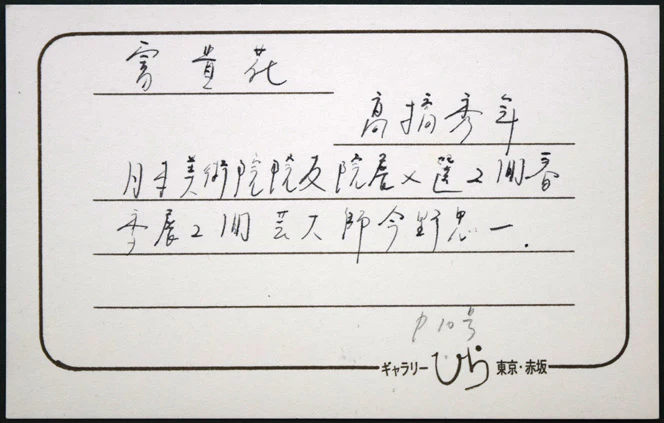 富貴花
高橋秀年
日本美術院院友院展入選2回春
季展2回芸大師今野忠一.
P10号
ギャラリーひら 東京・赤坂